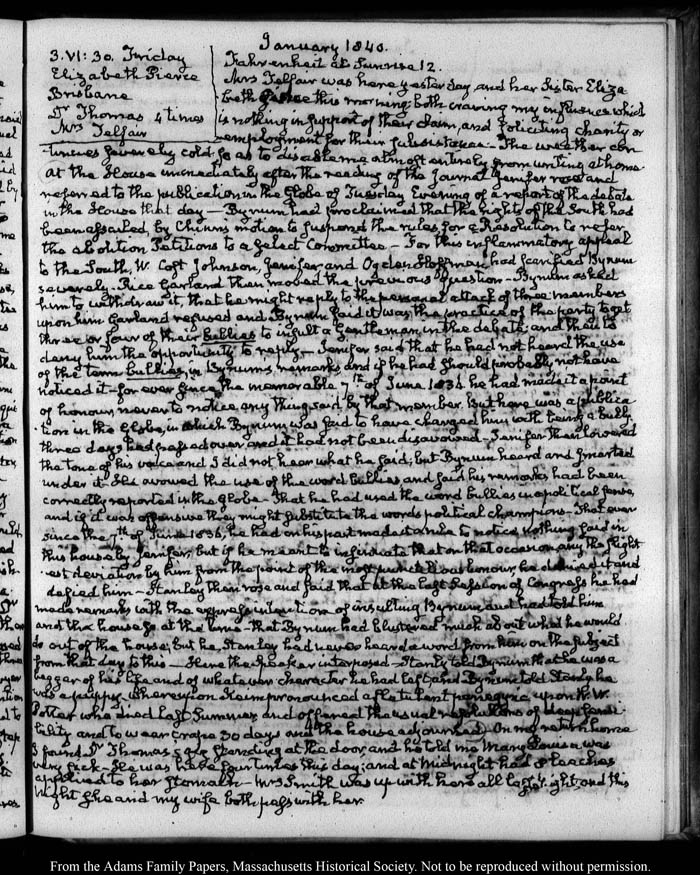 January 1840.
3. VI: 30. Friday
Elizabeth Pierce
Brisbane
Dr Thomas 4 times
Mrs Telfair
Fahrenheit at Sunrise 12.
Mrs Telfair was here yesterday and her Sister Eliza-
beth Pierce this morning; both craving my influence which
is nothing in support of their claim, and soliciting charity or
employment for their subsistence— The weather con-
tinues severely cold, so as to disable me almost entirely from writing at home
At the House immediately after the reading of the Journal Jenifer rose and
referred to the publication in the Globe of Tuesday Evening of a report of the debate
in the House that day— Bynum had proclaimed that the rights of the South had
been assailed, by Chinn's motion to suspend the rules for a Resolution to refer
the abolition Petitions to a Select Committee— For this inflammatory appeal
to the South, W. Cost Johnson, Jenifer and Ogden Hoffman had scarified Bynum
severely. Rice Garland then moved the previous question— Bynum asked
him to withdraw it, that he might reply to the personal attack of three members
upon him. Garland refused and Bynum said it was the practice of the party to get
three or four of their bullies to insult a Gentleman in the debate and then to
deny him the opportunity to reply— Jenifer said that he had not heard the use
of the term bullies, in Bynum's remarks and if he had should probably not have
noticed it—for ever since the memorable 7th of June 1836 he had made it a point
of honour, never to notice any thing said by that member. But here was a publica-
tion in the Globe, in which Bynum was said to have charged him with being a bully.
three days had passed over and it had not been disavowed— Jenifer then lowered
the tone of his voice and I did not hear what he said; but Bynum heard and smarted
under it. He avowed the use of the word bullies, and said his remarks had been
correctly reported in the Globe. That he had used the word bullies in a political sense,
and if it was offensive they might substitute the words political champions— That ever
since the 7th of June 1836, he had on his part made it a rule to notice nothing said in
this house by Jenifer; but if he meant to insinuate that on that occasion any the slight-
est deviation by him from the point of the most punctilious honour, he denied it and
defied him— Stanley then rose and said that at the last Session of Congress he had
made remarks with the express intention of insulting Bynum and had told him
and the house so at the time— that Bynum had blustered much about what he would
do out of the house, but he, Stanley had never heard a word from him on the subject
from that day to this— Here the Speaker interposed— Stanly told Bynum that he was a
beggar of his life and of whatever character he had left, and Bynum told Stanly he
was a puppy. Whereupon Keim pronounced a flatulent panegyric upon W. W.
Potter who died last Summer, and offered the usual resolutions of deep sensi-
bility and to wear crape 30 days and the house adjourned. On my return home
I found Dr Thomas's gig standing at the door, and he told me Mary Louisa was
very sick— He was here four times this day; and at Midnight had 8 leaches
applied to her Stomach— Mrs Smith was up with her all last Night, and this
Night she and my wife both pass with her.
From the Adams Family Papers, Massachusetts Historical Society. Not to be reproduced without permission.